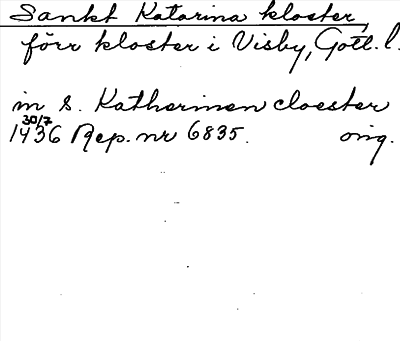 Sankt Katarina kloster,
förr kloster i Visby, Gotl. l.
in S. Katherinen cloester
30/7
1436 Rep. nr 6835. orig.